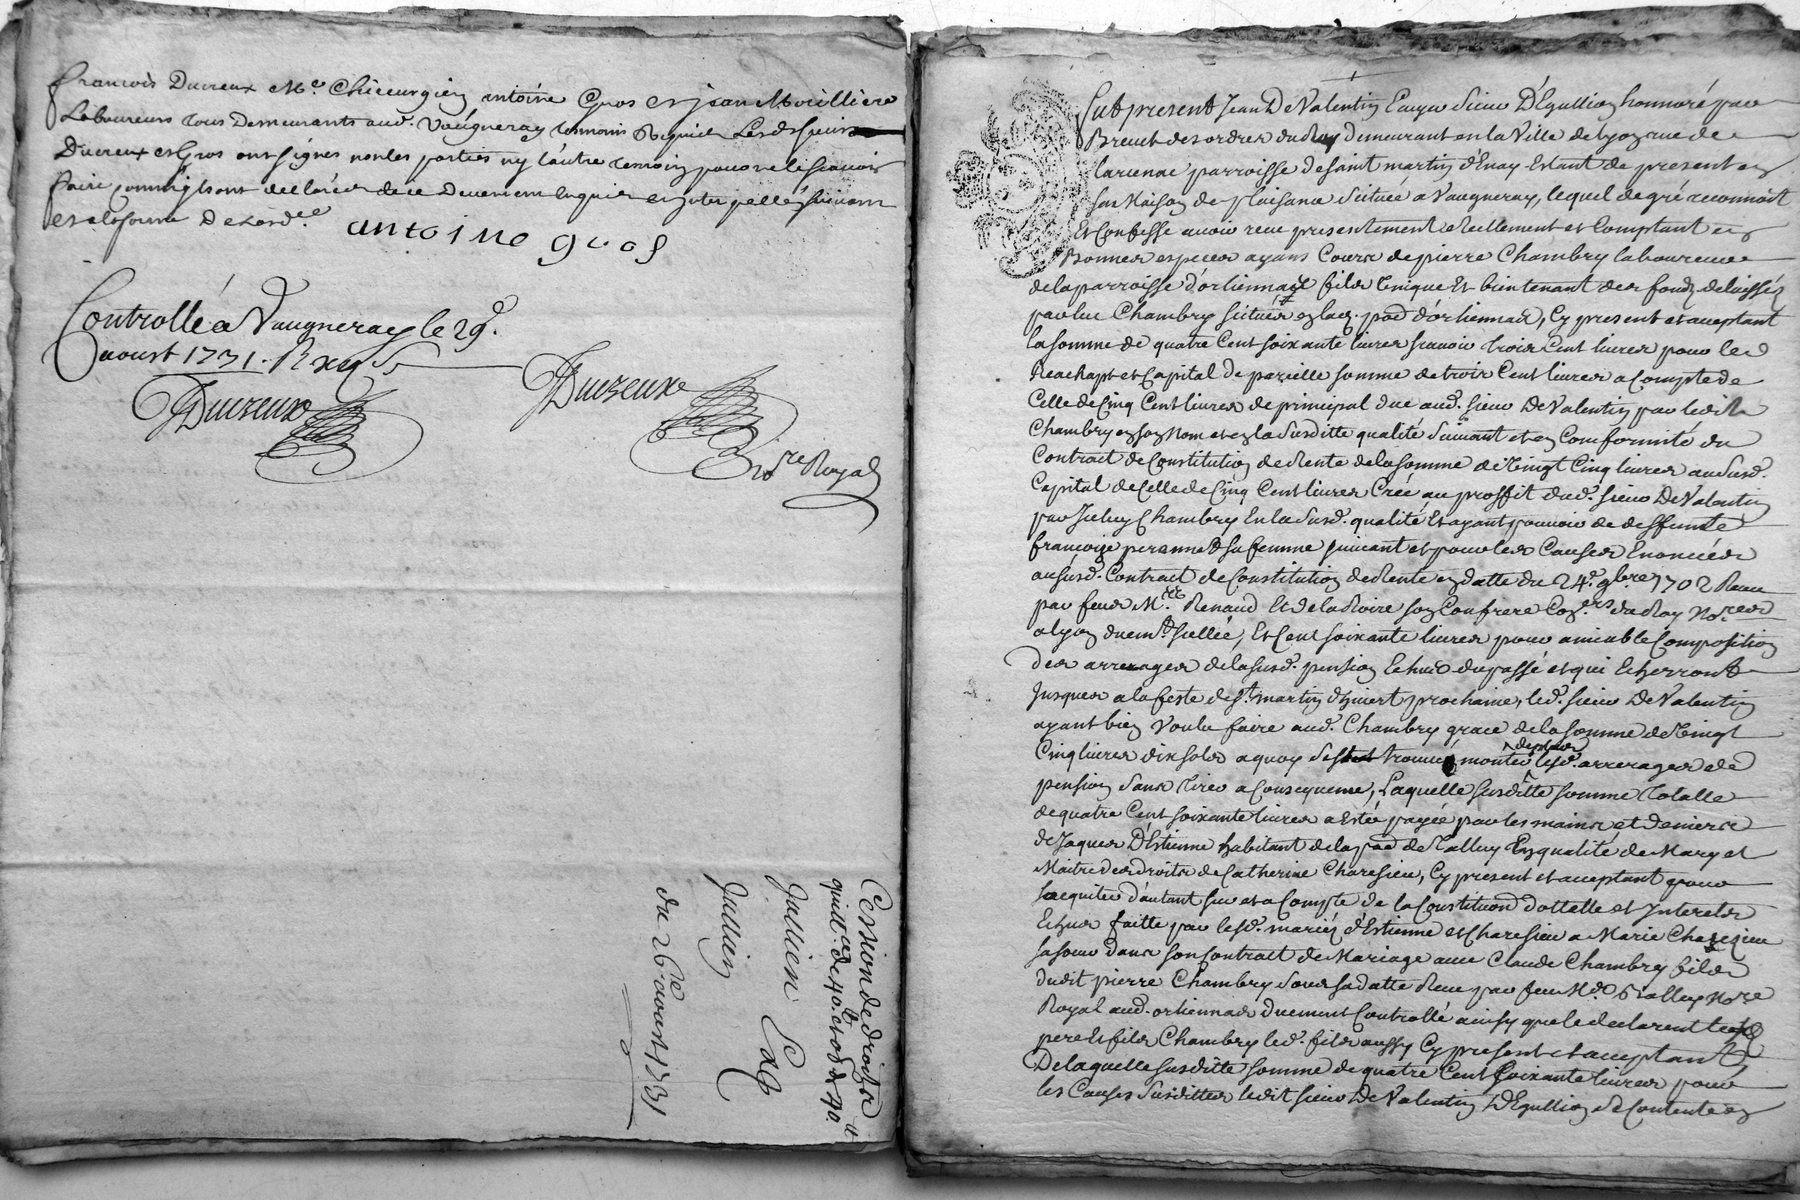 françois Ducreux Me. Chirurgien antoine Gros et jean Morilliere
Laboureurs tous Demeurants aud. Vaugneray temoins Requis Lesd. sieurs
Ducreux et Gros ont signés non les parties ny l'autre temoin pour ne le scavoir
faire comm'ils ont declarés de ce Duement enquis et interpellés suivant
et a la forme De l'ord.ce
antoine gros
Controllé a Vaugneray le 29e.
aoust 1731. R
Ducreux
Ducreux
No.re Royal
Cession de droits
quitt.ce de 40.lt et od. de 40.lt
Jullien
Jullien
du 26e aoust 1731
Fut present Jean De Valentin Ecuyer Sieur D'Egullion honnoré par
Brevet des ordres du Roy demeurant en la Ville de Lyon rue de
Larcenac parroisse de saint martin d'Enay Estant de present en
sa Maison de plaisance Scituée a Vaugneray, lequel de gré reconnoit
Et Confesse avoir receu presentement reellement et Comptant en
Bonnes especes ayans Cours de pierre Chambry laboureur
de la parroisse d'orliennas fils Unique Et bientenant des fonds delaissés
par luc Chambry scitués en lad. paro. d'orliennas, Cy present et acceptant
la somme de quatre Cent soixante livres scavoir trois Cent livres pour le
Reachapt et Capital de pareille somme de trois Cent livres a Compte de
Celle de Cinq Cent livres de principal due aud. sieur De Valentin par ledit
Chambry en son Nom et en la Susditte qualité Suivant et en Conformité du
Contract de Constitution de Rente de la somme de Vingt Cinq livres au Susd.
Capital de Celle de Cinq Cent livres Créé au proffit dud. sieur De Valentin
par Chambry En la Susd. qualité, Et ayant pouvoir de deffunte
françoise sa femme suivant et pour les Causes Enoncées
au susd. Contract de Constitution de Rente en datte du 24e. 9bre 1702 Receu
par feus M.es Renaud Et de la Roire son Confrere Con.ers du Roy No.res
a Lyon duem.t scellé, Et Cent soixante livres pour amiable Composition
des arrerages de la susd. pension Echus du passé et qui Echerront
Jusques a la feste de St. martin d'hivert prochaine, led. sieur De Valentin
ayant bien Voulu faire aud. Chambry grace de la somme de Vingt
Cinq livres dix sols a quoy se sont trouvés monter lesd. arrerages de
pension sans tirer a Consequence, Laquelle susditte somme totalle
de quatre Cent soixante livres a Esté payée par les mains et deniers
de Jaques D'Estienne habitant de la paro. de En qualité de Mary et
Maitre des droits de Catherine Charesieu, Cy present et acceptant pour
s'acquiter d'autant sur et a Compte de la Constitution dottalle et Interets
Echus faitte par lesd. mariés d'Estienne et Charesieu a Marie Charezieu
sa soeur dans son Contract de Mariage avec Claude Chambry fils
dudit pierre Chambry sous sa datte Receu par feu Me. No.re
Royal aud. orliennas duement Controllé ainsy que le declarent
pere Et fils Chambry led. fils aussy Cy present et acceptant
De laquelle susditte somme de quatre Cent soixante livres pour
les Causes Susdittes ledit sieur De Valentin D'Egullion se Contente en